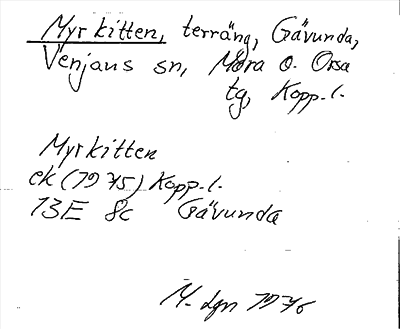 Myrkitten, terräng, Gävunda,
Venjans sn, Mora o. Orsa
tg, Kopp. l.
Myrkitten
ek (1975) Kopp. l.
13E 8c Gävunda
1976